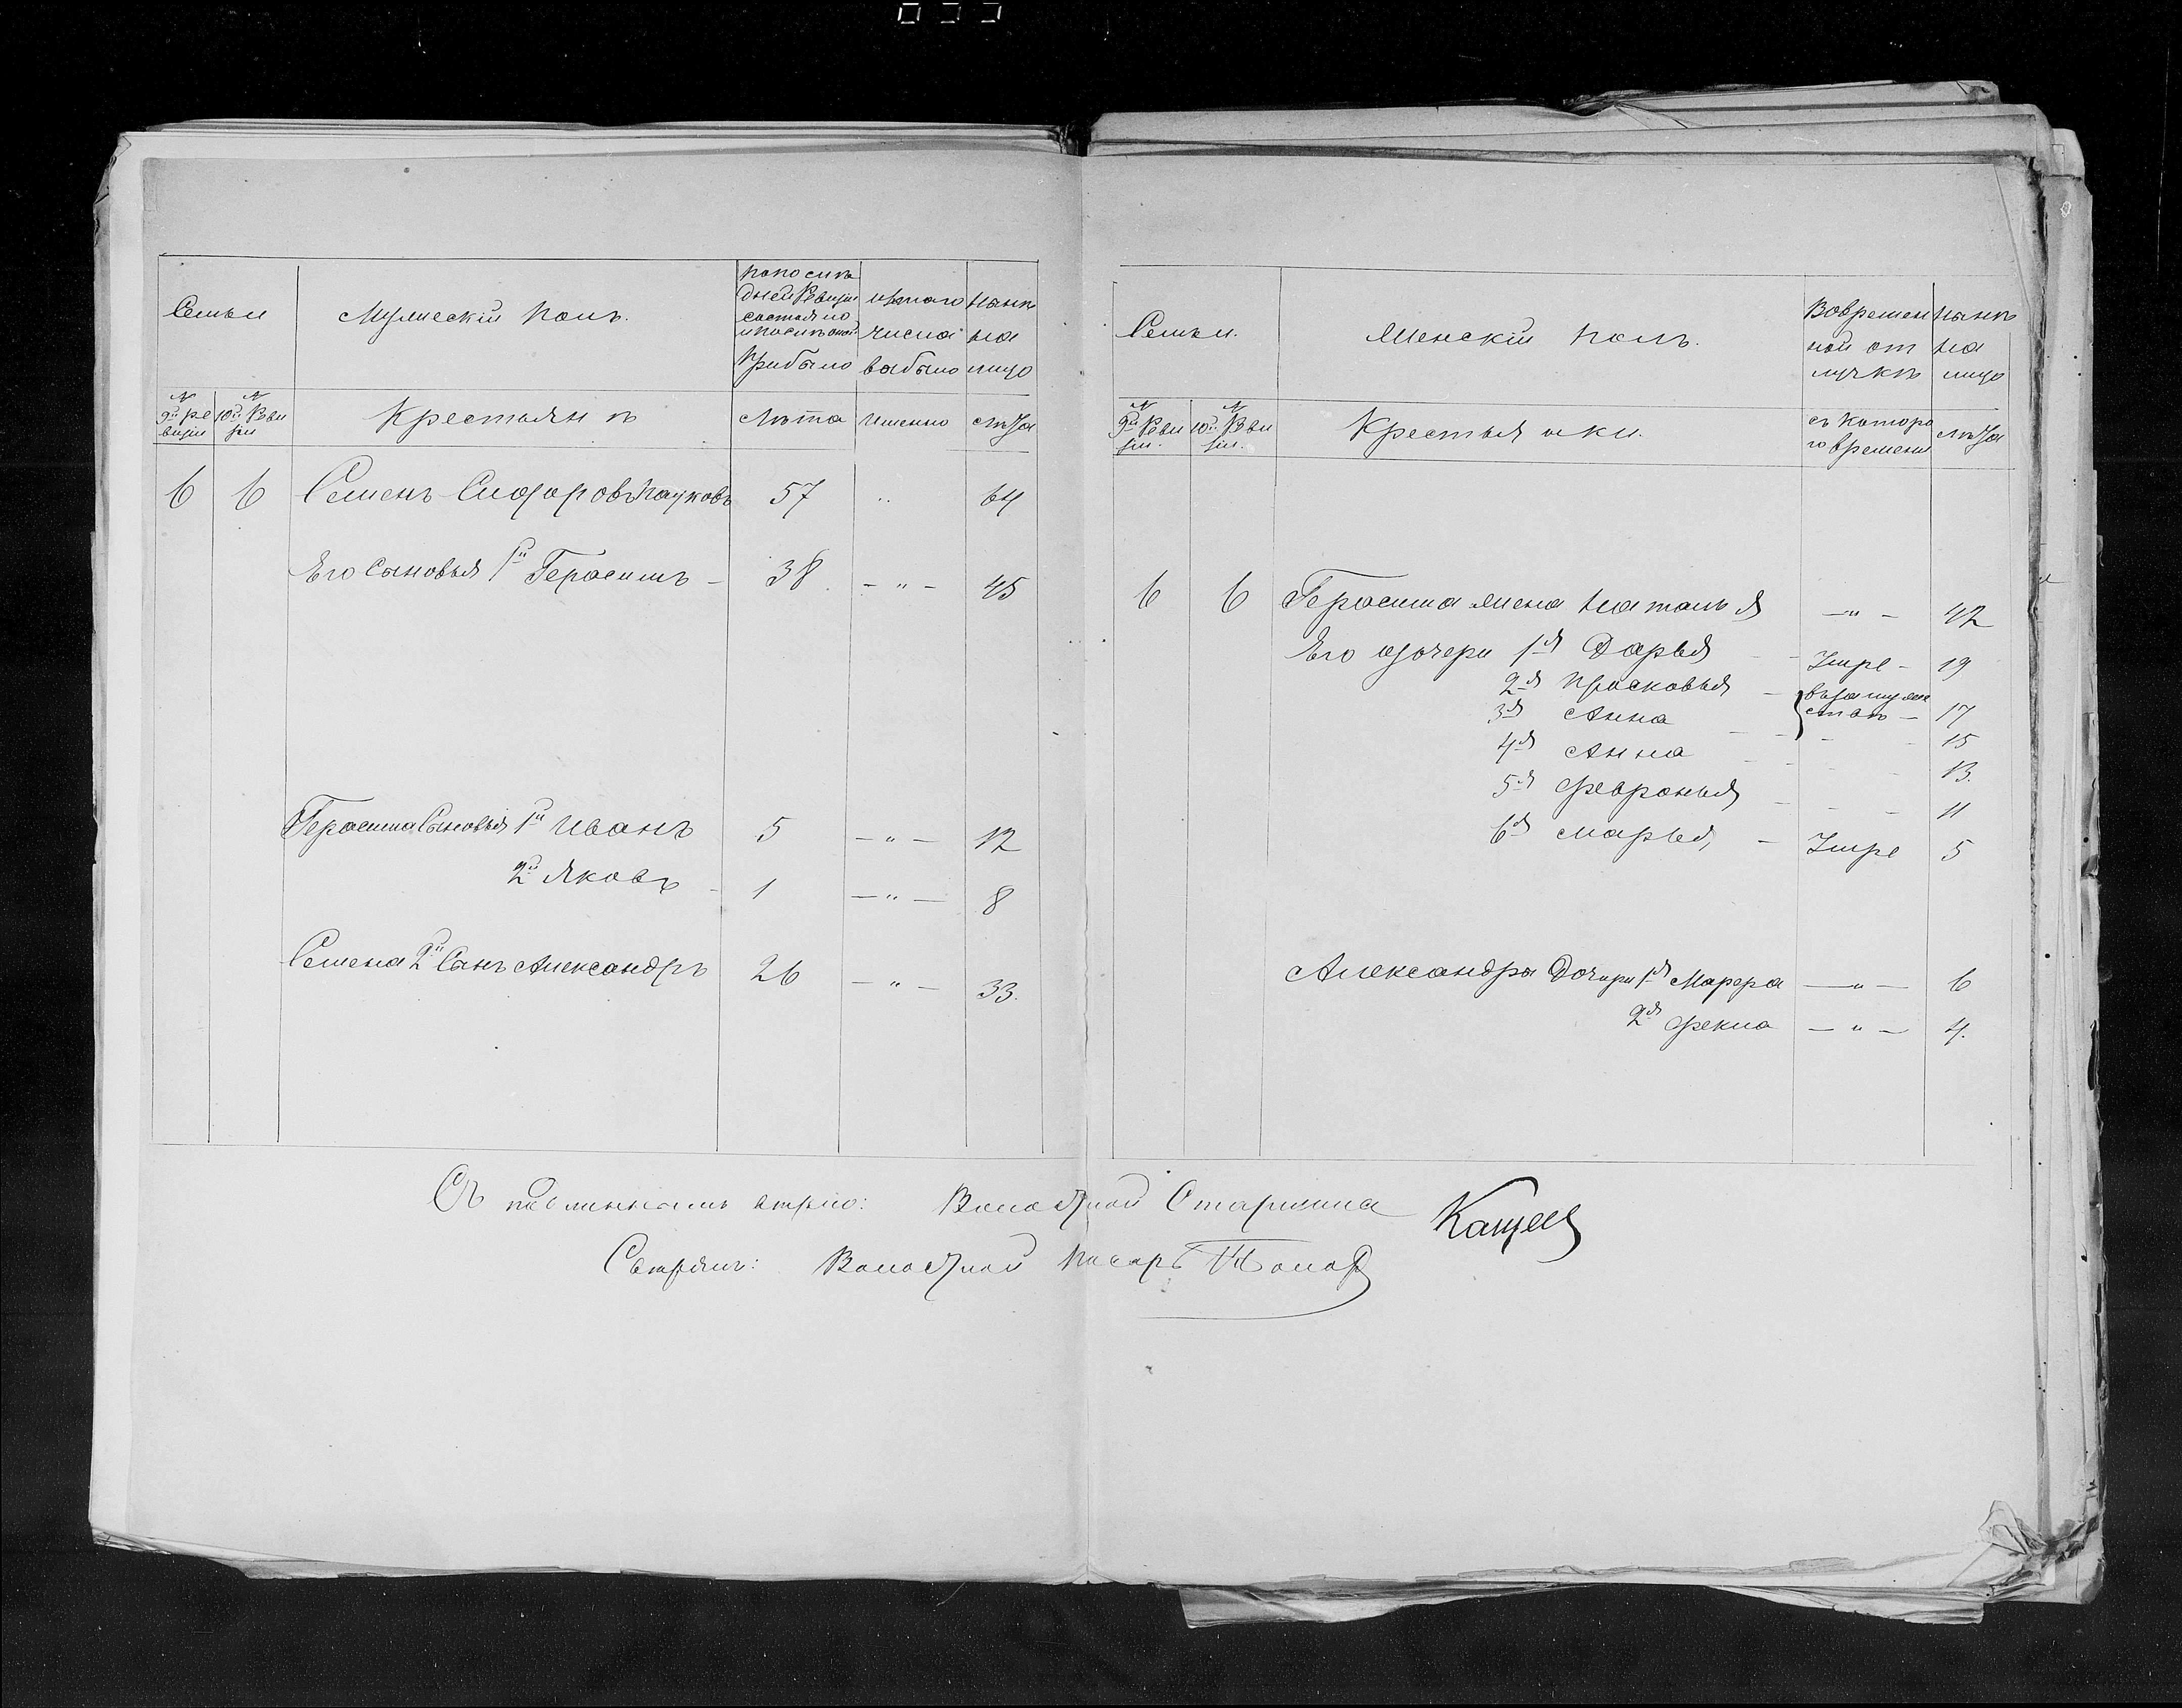 Семьи
Мужескій полъ.
По последней Ревизіи состояло и после оной прибыло
Изъ того числа выбыло
Ныне на лицо
№ 9й Ревизіи
№ 10й Ревизіи
Крестьянъ
Лѣта
именно
Лѣта
6 6 Семенъ Сидоровъ Пауковъ 57 „ 64
Его Сыновья 1й Герасимъ - 38 - „ - 45
Герасима Сыновья 1й Иванъ 5 - „ - 12
2й Яковъ - 1 - „ - 8
Семена 2й Сынъ Александръ 26 - „ - 33.
Семьи.
Женскій полъ.
Во временной отлучкѣ
Нынѣ на лицо
№ 9й Ревизіи.
№ 10й Ревизіи.
Крестьянки.
съ которого времени
Лѣта
6 6 Герасима жена Наталья - „ - 42
Его дочери 1я Дарья - Умре - 19
2я Прасковья - } въ замужествѣ - 17
3я Анна - - 15
4я Анна - - 13.
5я Февронья - - 11
6я Марья, - Умре 5
Александра Дочери 1я Марфа - „ - 6
2я Фекла - „ - 4.
Съ подлиннымъ вѣрно: Волостной Старшина Кащеев
Свѣрялъ: Волостной писарь Попов